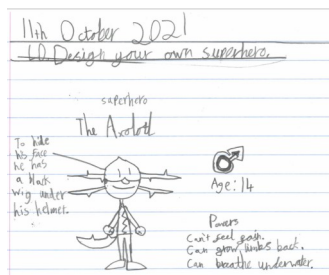 11th October 2021
LO. Design your own superhero.
superhero
The Axolotl
To hide
his face
he has
a black
wig under
his helmet.
Age: 14
Powers
Can't feel pain.
Can grow limbs back.
Can breathe underwater.